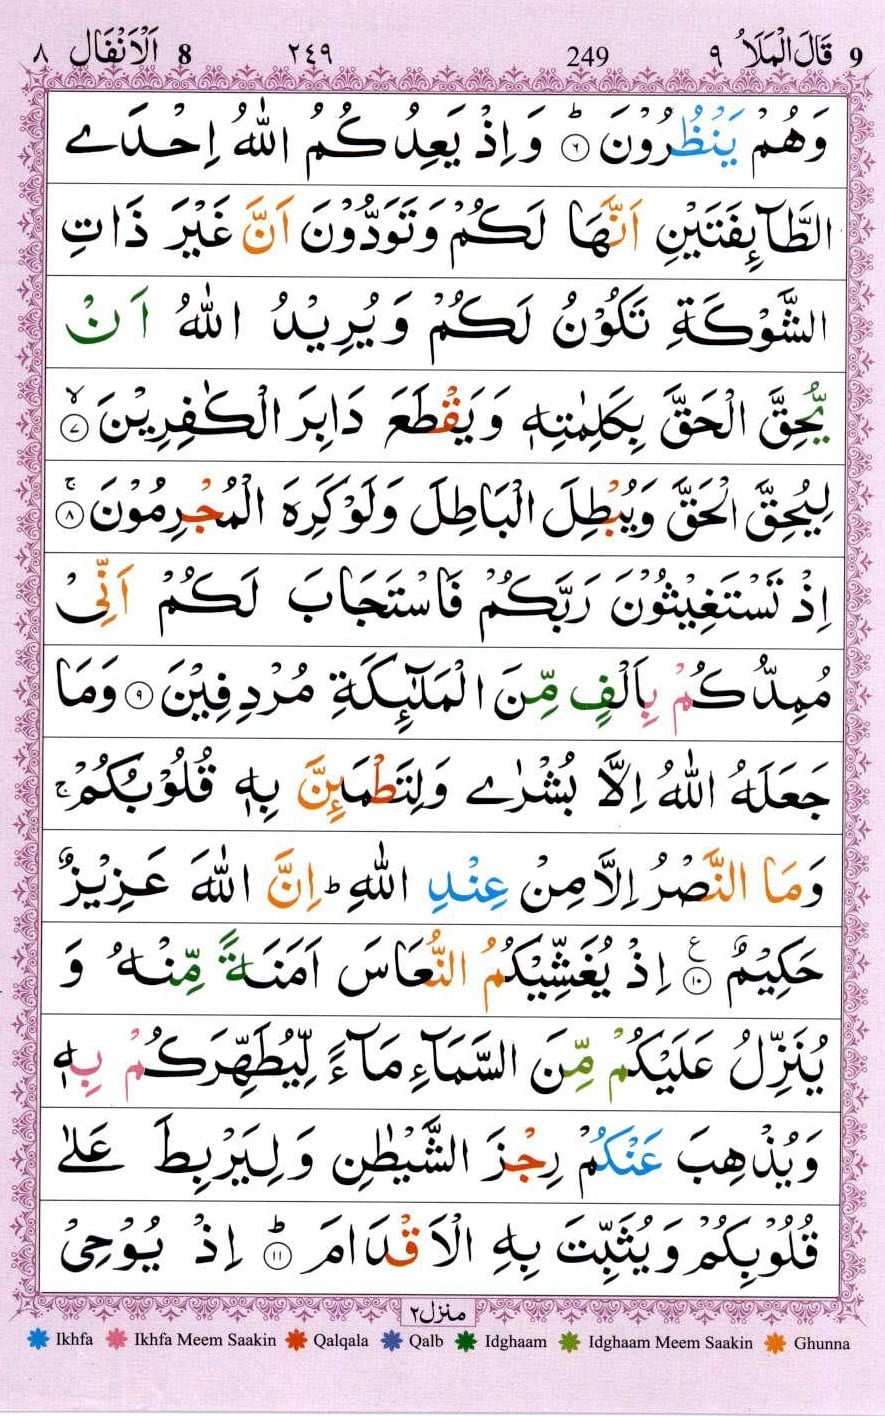 9 قَالَ الْمَلَاُ ٩ 249 ٢٤٩ 8 اَلْاَنْفَال ٨
وَهُمْ يَنْظُرُوْنَ ؕ۝٦ وَاِذْ يَعِدُكُمُ اللّٰهُ اِحْدَے
الطَّآئِفَتَيْنِ اَنَّهَا لَكُمْ وَتَوَدُّوْنَ اَنَّ غَيْرَ ذَاتِ
الشَّوْكَةِ تَكُوْنُ لَكُمْ وَيُرِيْدُ اللّٰهُ اَنْ
يُّحِقَّ الْحَقَّ بِكَلِمٰتِهٖ وَيَقْطَعَ دَابِرَ الْكٰفِرِيْنَ ۙ۝٧
لِيُحِقَّ الْحَقَّ وَيُبْطِلَ الْبَاطِلَ وَلَوْكَرِهَ الْمُجْرِمُوْنَ ۚ۝٨
اِذْ تَسْتَغِيْثُوْنَ رَبَّكُمْ فَاسْتَجَابَ لَكُمْ اَنِّىْ
مُمِدُّكُمْ بِاَلْفٍ مِّنَ الْمَلٰٓئِكَةِ مُرْدِفِيْنَ ۝٩ وَمَا
جَعَلَهُ اللّٰهُ اِلَّا بُشْرٰے وَلِتَطْمَئِنَّ بِهٖ قُلُوْبُكُمْ ۚ
وَمَا النَّصْرُ اِلَّا مِنْ عِنْدِ اللّٰهِ ؕ اِنَّ اللّٰهَ عَزِيْزٌ
حَكِيْمٌ ۝١٠ ع اِذْ يُغَشِّيْكُمُ النُّعَاسَ اَمَنَةً مِّنْهُ وَ
يُنَزِّلُ عَلَيْكُمْ مِّنَ السَّمَآءِ مَآءً لِّيُطَهِّرَكُمْ بِهٖ
وَيُذْهِبَ عَنْكُمْ رِجْزَ الشَّيْطٰنِ وَلِيَرْبِطَ عَلٰے
قُلُوْبِكُمْ وَيُثَبِّتَ بِهِ الْاَقْدَامَ ؕ۝١١ اِذْ يُوْحِىْ
منزل٢
Ikhfa Ikhfa Meem Saakin Qalqala Qalb Idghaam Idghaam Meem Saakin Ghunna